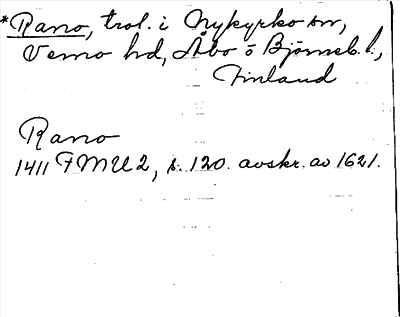 *Rano, trol. i Nykyrko sn,
Vemo hd, Åbo o Björneb. l.,
Finland
Rano
1411 FMU 2, s. 120. avskr. av 1621.